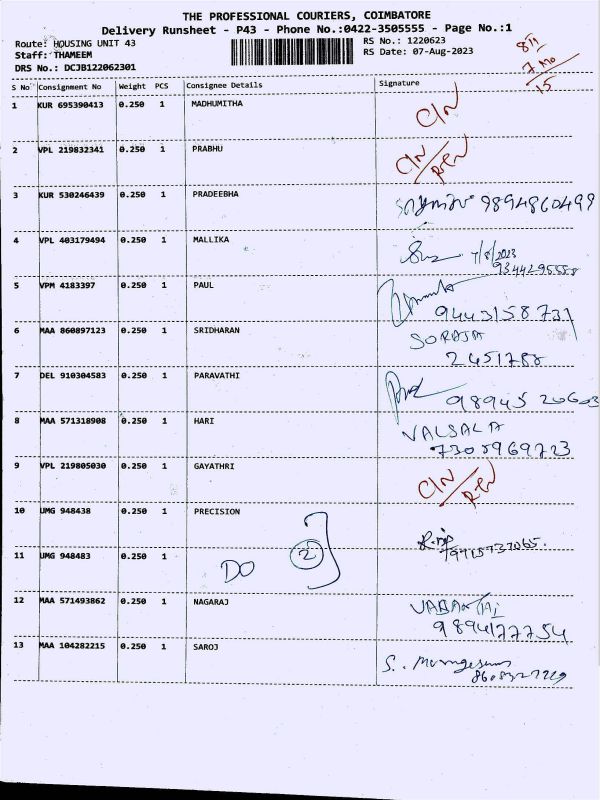 THE PROFESSIONAL COURIERS, COIMBATORE
Delivery Runsheet - P43 - Phone No.:0422-3505555 - Page No.:1
Route: HOUSING UNIT 43 RS No.: 1220623
Staff: THAMEEM RS Date: 07-Aug-2023
DRS No.: DCJB122062301
S No Consignment No Weight PCS Consignee Details Signature
1 KUR 695390413 0.250 1 MADHUMITHA C/N
2 VPL 219832341 0.250 1 PRABHU C/N
3 KUR 530246439 0.250 1 PRADEEBHA 9894860499
4 VPL 403179494 0.250 1 MALLIKA 7/8/2023
9344295558
5 VPM 4183397 0.250 1 PAUL
6 MAA 860897123 0.250 1 SRIDHARAN SORAJA
2451788
7 DEL 910304583 0.250 1 PARAVATHI
8 MAA 571318908 0.250 1 HARI VALSALA
7305969723
9 VPL 219805030 0.250 1 GAYATHRI C/N
10 UMG 948438 0.250 1 PRECISION
11 UMG 948483 0.250 1 DO 2
12 MAA 571493862 0.250 1 NAGARAJ
9894177754
13 MAA 104282215 0.250 1 SAROJ S. Murugesan